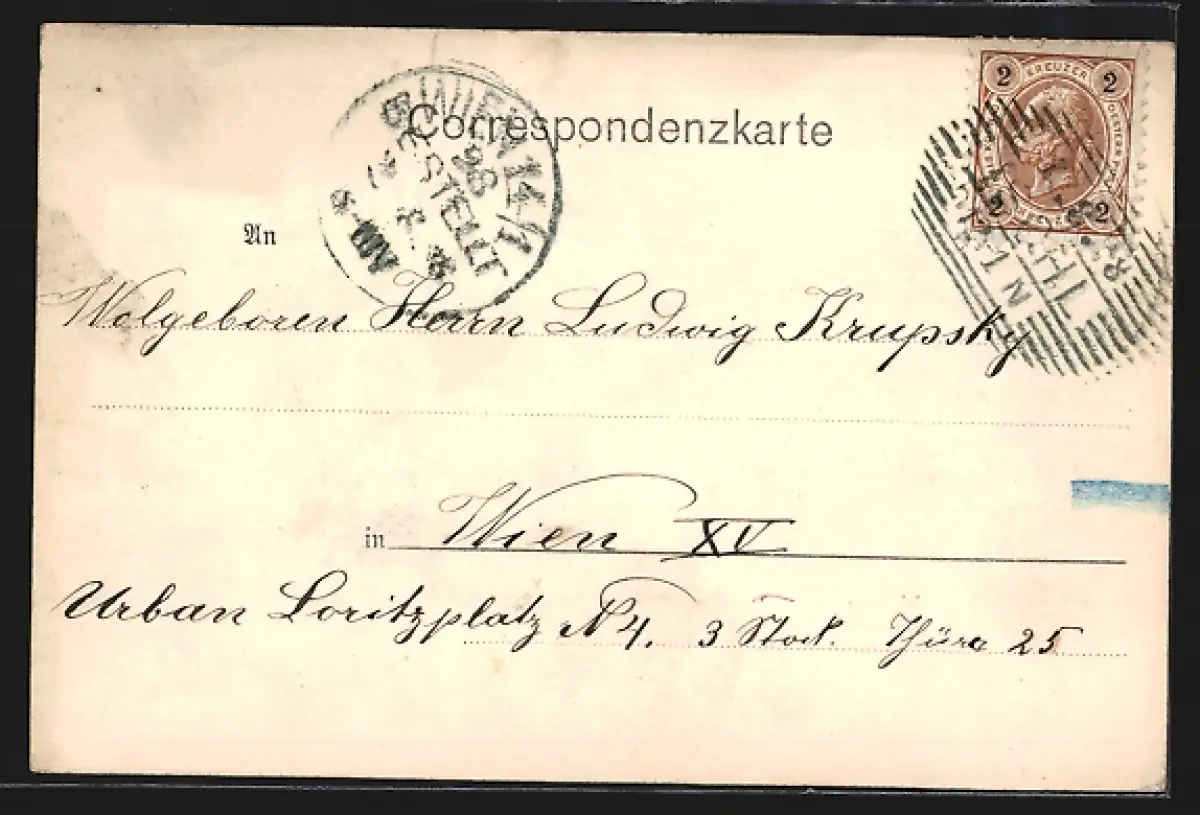 Correspondenzkarte
2 KREUZER 2
2 2
WIEN 14/1
BESTELLT
98
An
Wolgeboren Herrn Ludwig Krupsky
in Wien XV
Urban Loritzplatz N 4. 3 Stock. Thüra 25